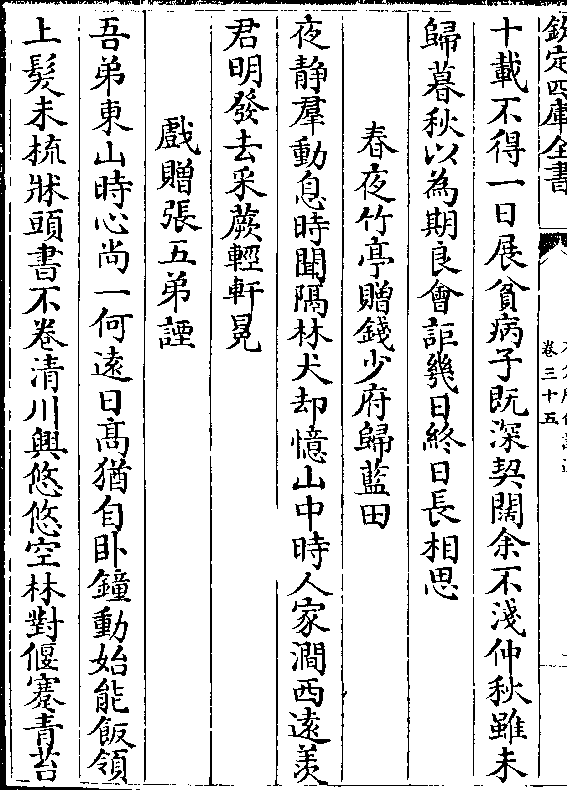 欽定四庫全書
卷三十五
十載不得一日展貧病子既深契闊余不淺仲秋雖未
歸暮秋以為期良會詎幾日終日長相思
春夜竹亭贈錢少府歸藍田
夜静羣動息時聞隔林犬却憶山中時人家澗西遠羡
君明發去采蕨輕軒冕
戲贈張五弟諲
吾弟東山時心尚一何遠日髙猶自卧鐘動始能飯領
上髮未梳牀頭書不卷清川興悠悠空林對偃蹇青苔